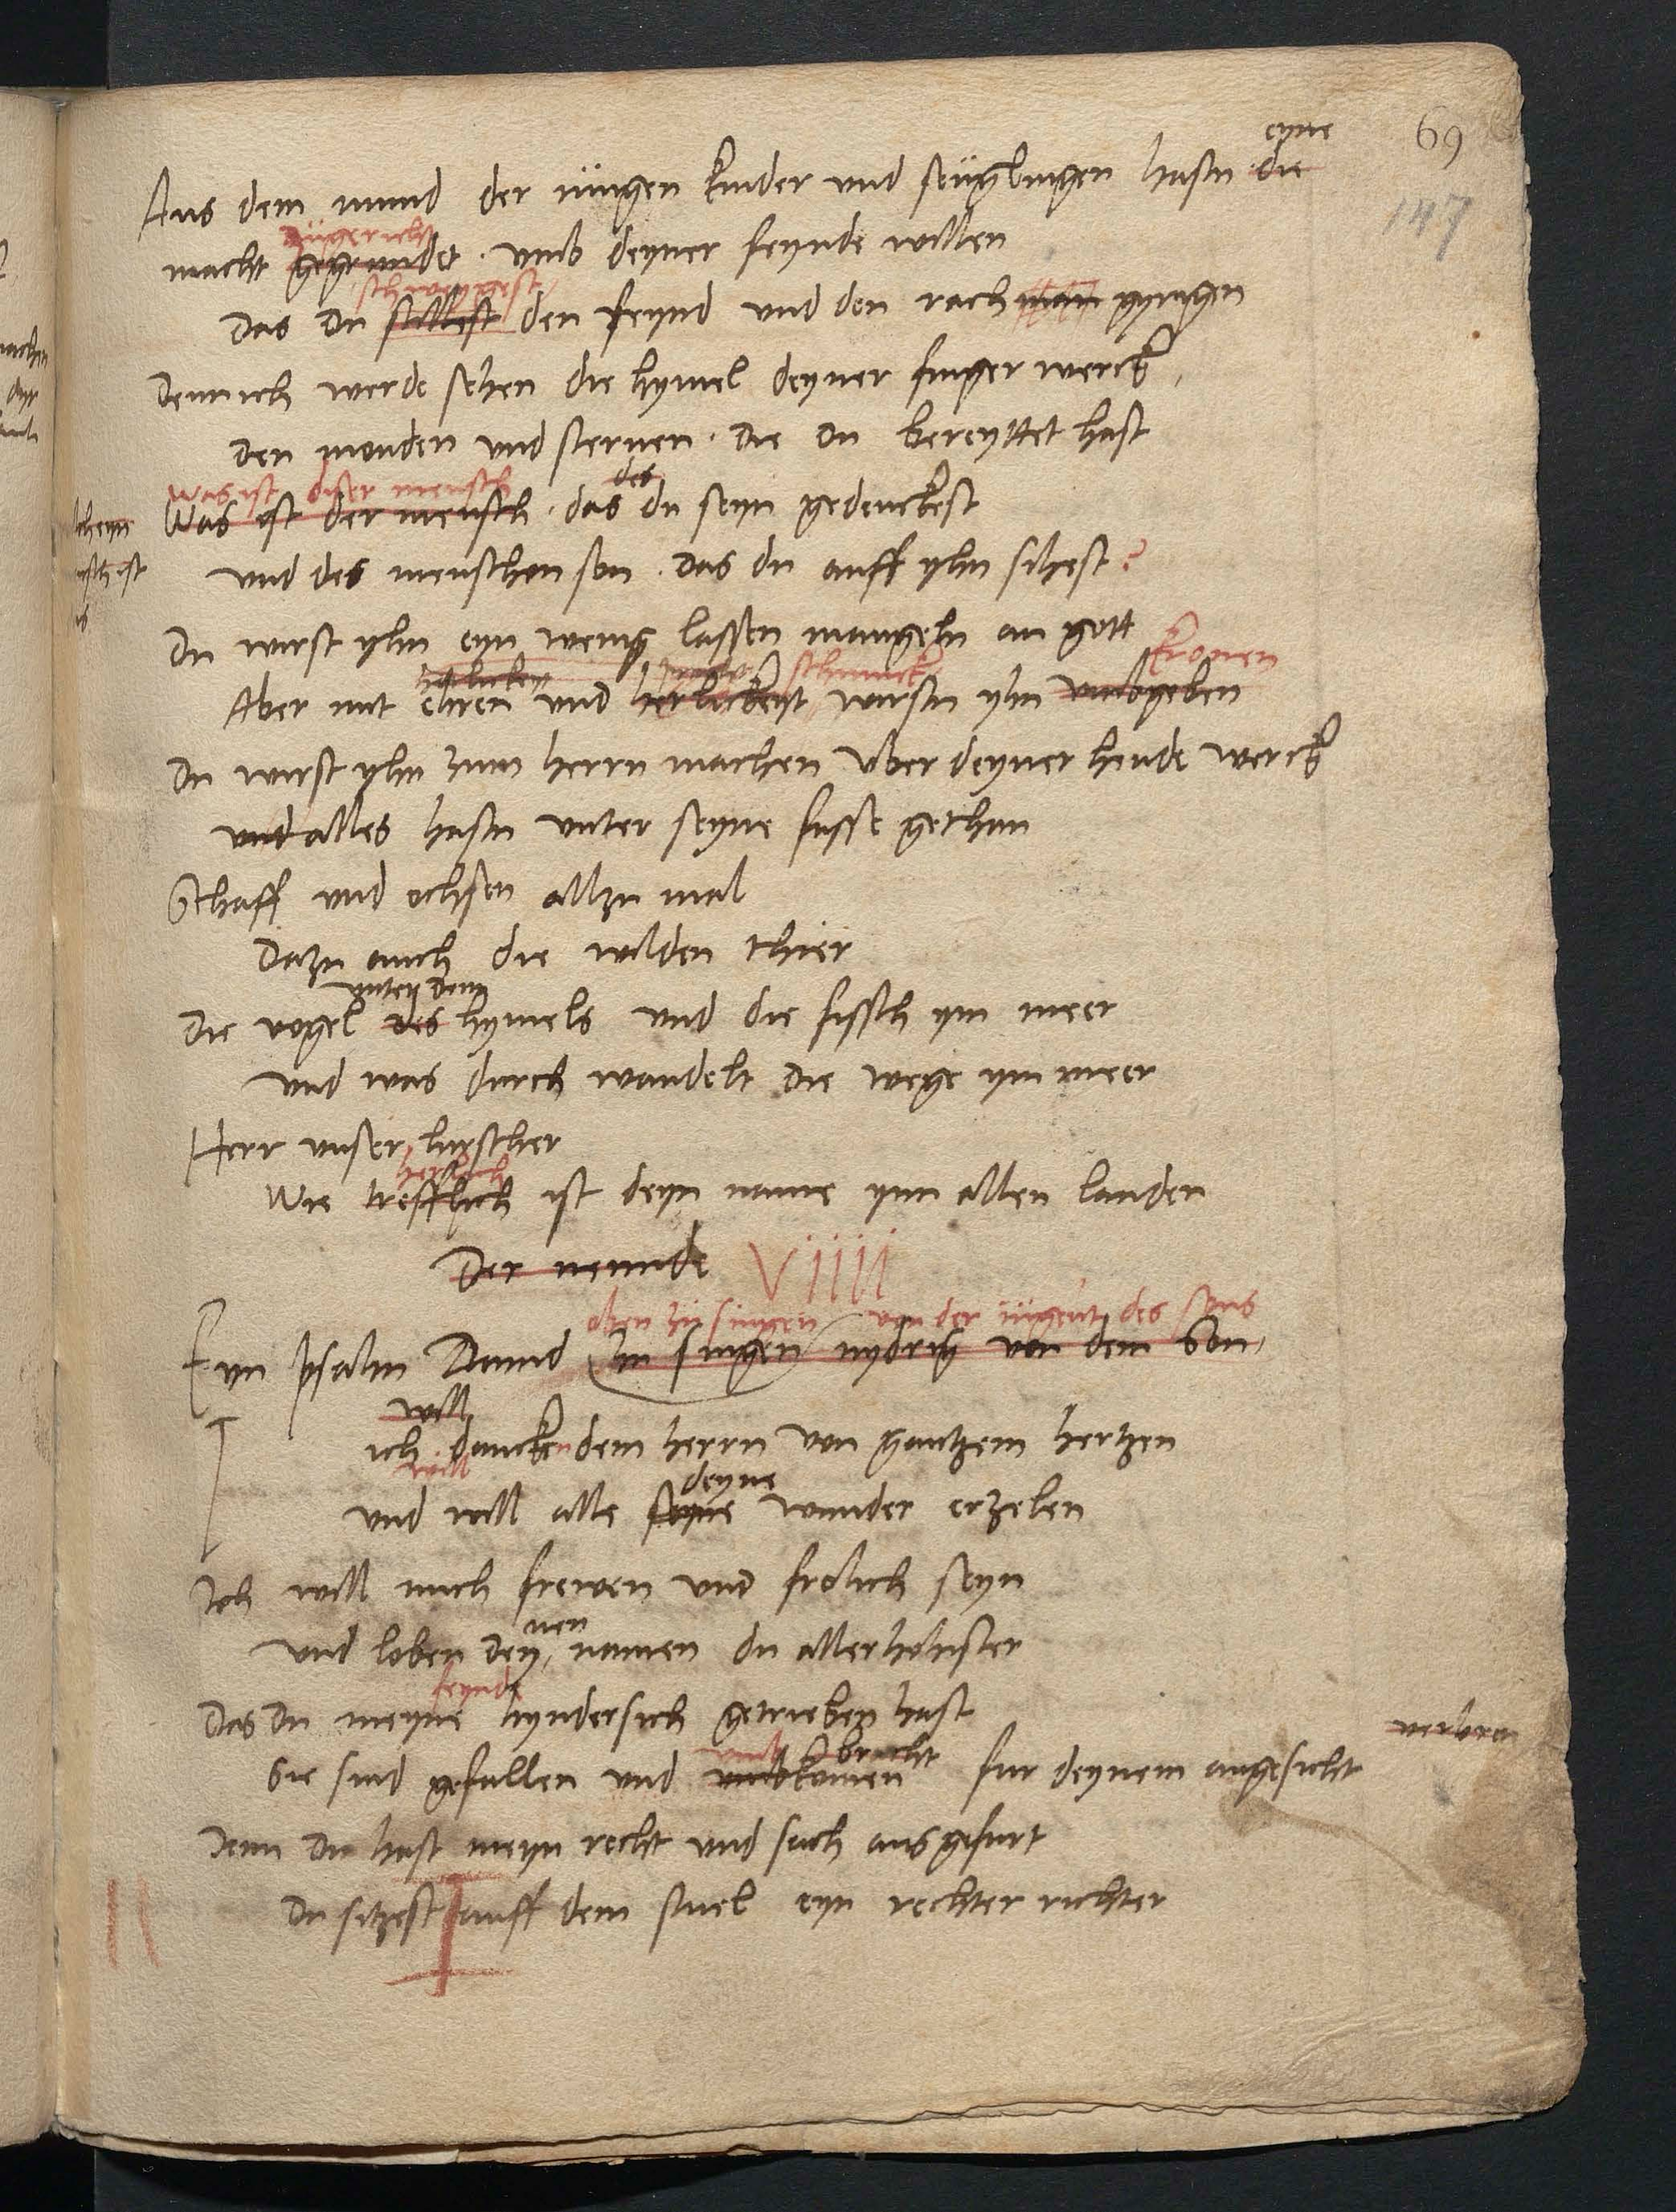 69
147
eyne
Aus dem mund der iungen kinder und seuglingen hastu die
zugericht
macht gegrundet . umb deyner feynde willen
Das du stillest den feynd und den rach man gyrigen
Denn ich werde sehen die hymel deyner finger werck
den monden und sternen . die du bereyttet hast
Was ist diser mensch
des
Was ist der mensch . das du seyn gedenckest
und des menschen son . das du auff yhn sihest ?
Du wirst yhn eyn wenig lassen mangeln an gott
schmuck kronen
Aber mit ehren und herlickeyt wirstu yhn umbgeben
Du wirst yhn zum herrn machen uber deyner hende werck
und alles hastu unter seyne fusse gethan
Schaff und ochsen allzu mal
Dazu auch die wilden thier
unter dem
Die vogel des hymels und die fissch ym meer
und was durch wandelt die wege ym meer
Herr unser hirscher
herlich
Wie trefflich ist deyn name ynn allen landen
Der neunde VIIII
oben zu singen von der iugent des sons
Eyn psalm Dauid zu singen nydrig von dem Son
will
ich dancken dem herrn von gantzem hertzen
will
deyne
und will alle seyne wunder erzelen
Ich will mich frewen und frolich seyn
nen
und loben dey namen du allerhohister
feynde
Das du meyne hyndersich getrieben hast
verbra
umb bracht
Sie sind gefallen und umbkomen fur deynem angesicht
Denn du hast meyn recht und sach ausgefurt
Du sitzest auff dem stuel eyn rechter richter